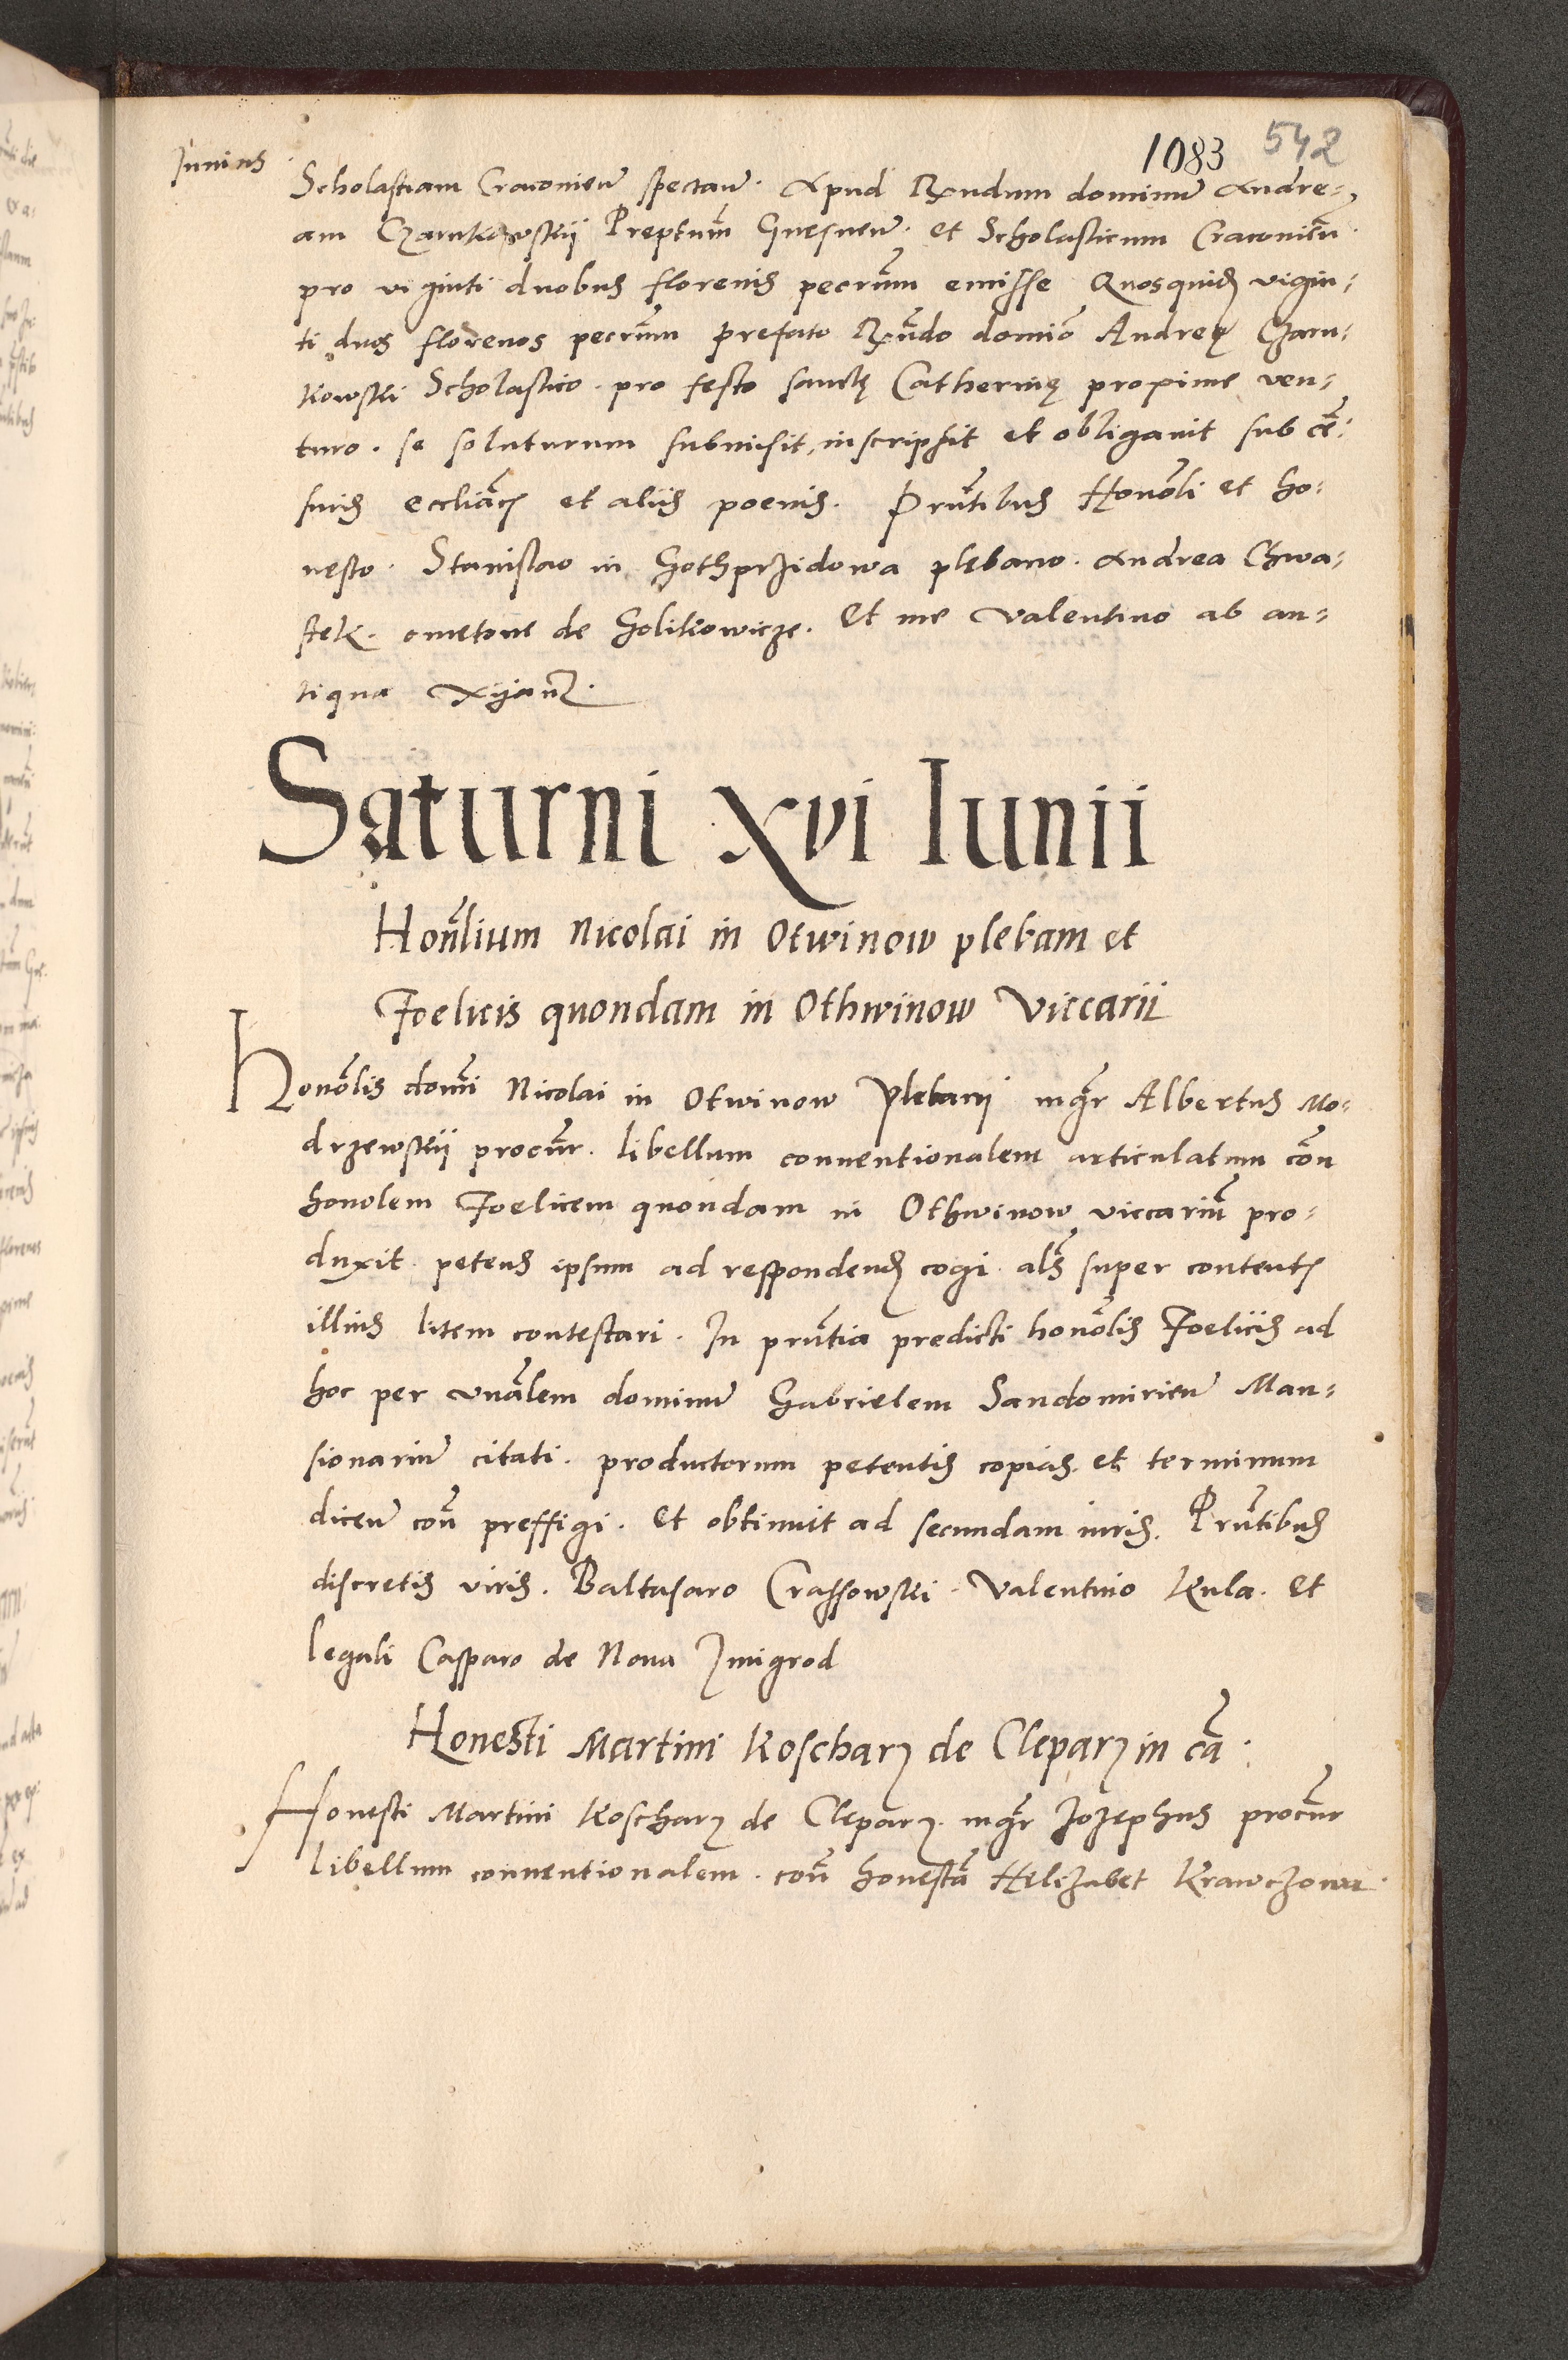 Junius
1083 542
Scholastiam Cracovien̄ spectan̄. Apud Rndum dominū Andre-
am Czarnkowskij Preptum̄ Gnesnen̄. et Scholasticum Cracovien̄
pro viginti duobus florenis pecrūm emisse Quosquid vigin-
ti duos florenos pecrūm prefato Rn̄do domiō Andreę Czarn-
kowski Scholastico. pro festo sanctę Catherinę proxime ven-
turo. se soluturum submisit, inscripsit et obligavit sub cē-
suris eccliāꝭ et aliis poenis. Prn̄tibus Honōli et ho-
nesto. Stanislao in Gothprzidowa plebano. Andrea Chwa-
stek. cmetone de Golikowicze. Et me Valentino ab an-
tiqua
Saturni xvi Iunii
Hon̄lium Nicolai in Otwinow plebani et
Foelicis quondam in Othwinow Viccarii
Honōlis domi̅ Nicolai in Otwinow Plebani mgr̄ Albertus Mo-
drzewskij procūr. libellum conventionalem articulatum cōn
honolem Foelicem quondam in Othwinow viccariū pro-
duxit. petens ipsum ad respondend cogi. als̄ super contentꝭ
illius litem contestari. In prn̄tia predicti honōlis Foelicis ad
hoc per vnālem dominū Gabrielem Sandomirien̄ Man-
sionariū citati. productorum petentis copias. et terminum
dicen̄ con̄ preffigi. et obtinuit ad secundam iuris. Prn̄tibus
discretis viris. Baltasaro Crassowski. Valentino Kula. et
legali Casparo de Nova Zmigrod
Honesti Martini Koscharz de Cleparz in cā.
Honesti Martini Koscharz de Cleparz. mgr̄ Jozephus procūr
libellum conventionalem. con̄ honestā Helizabet Krawczowa.